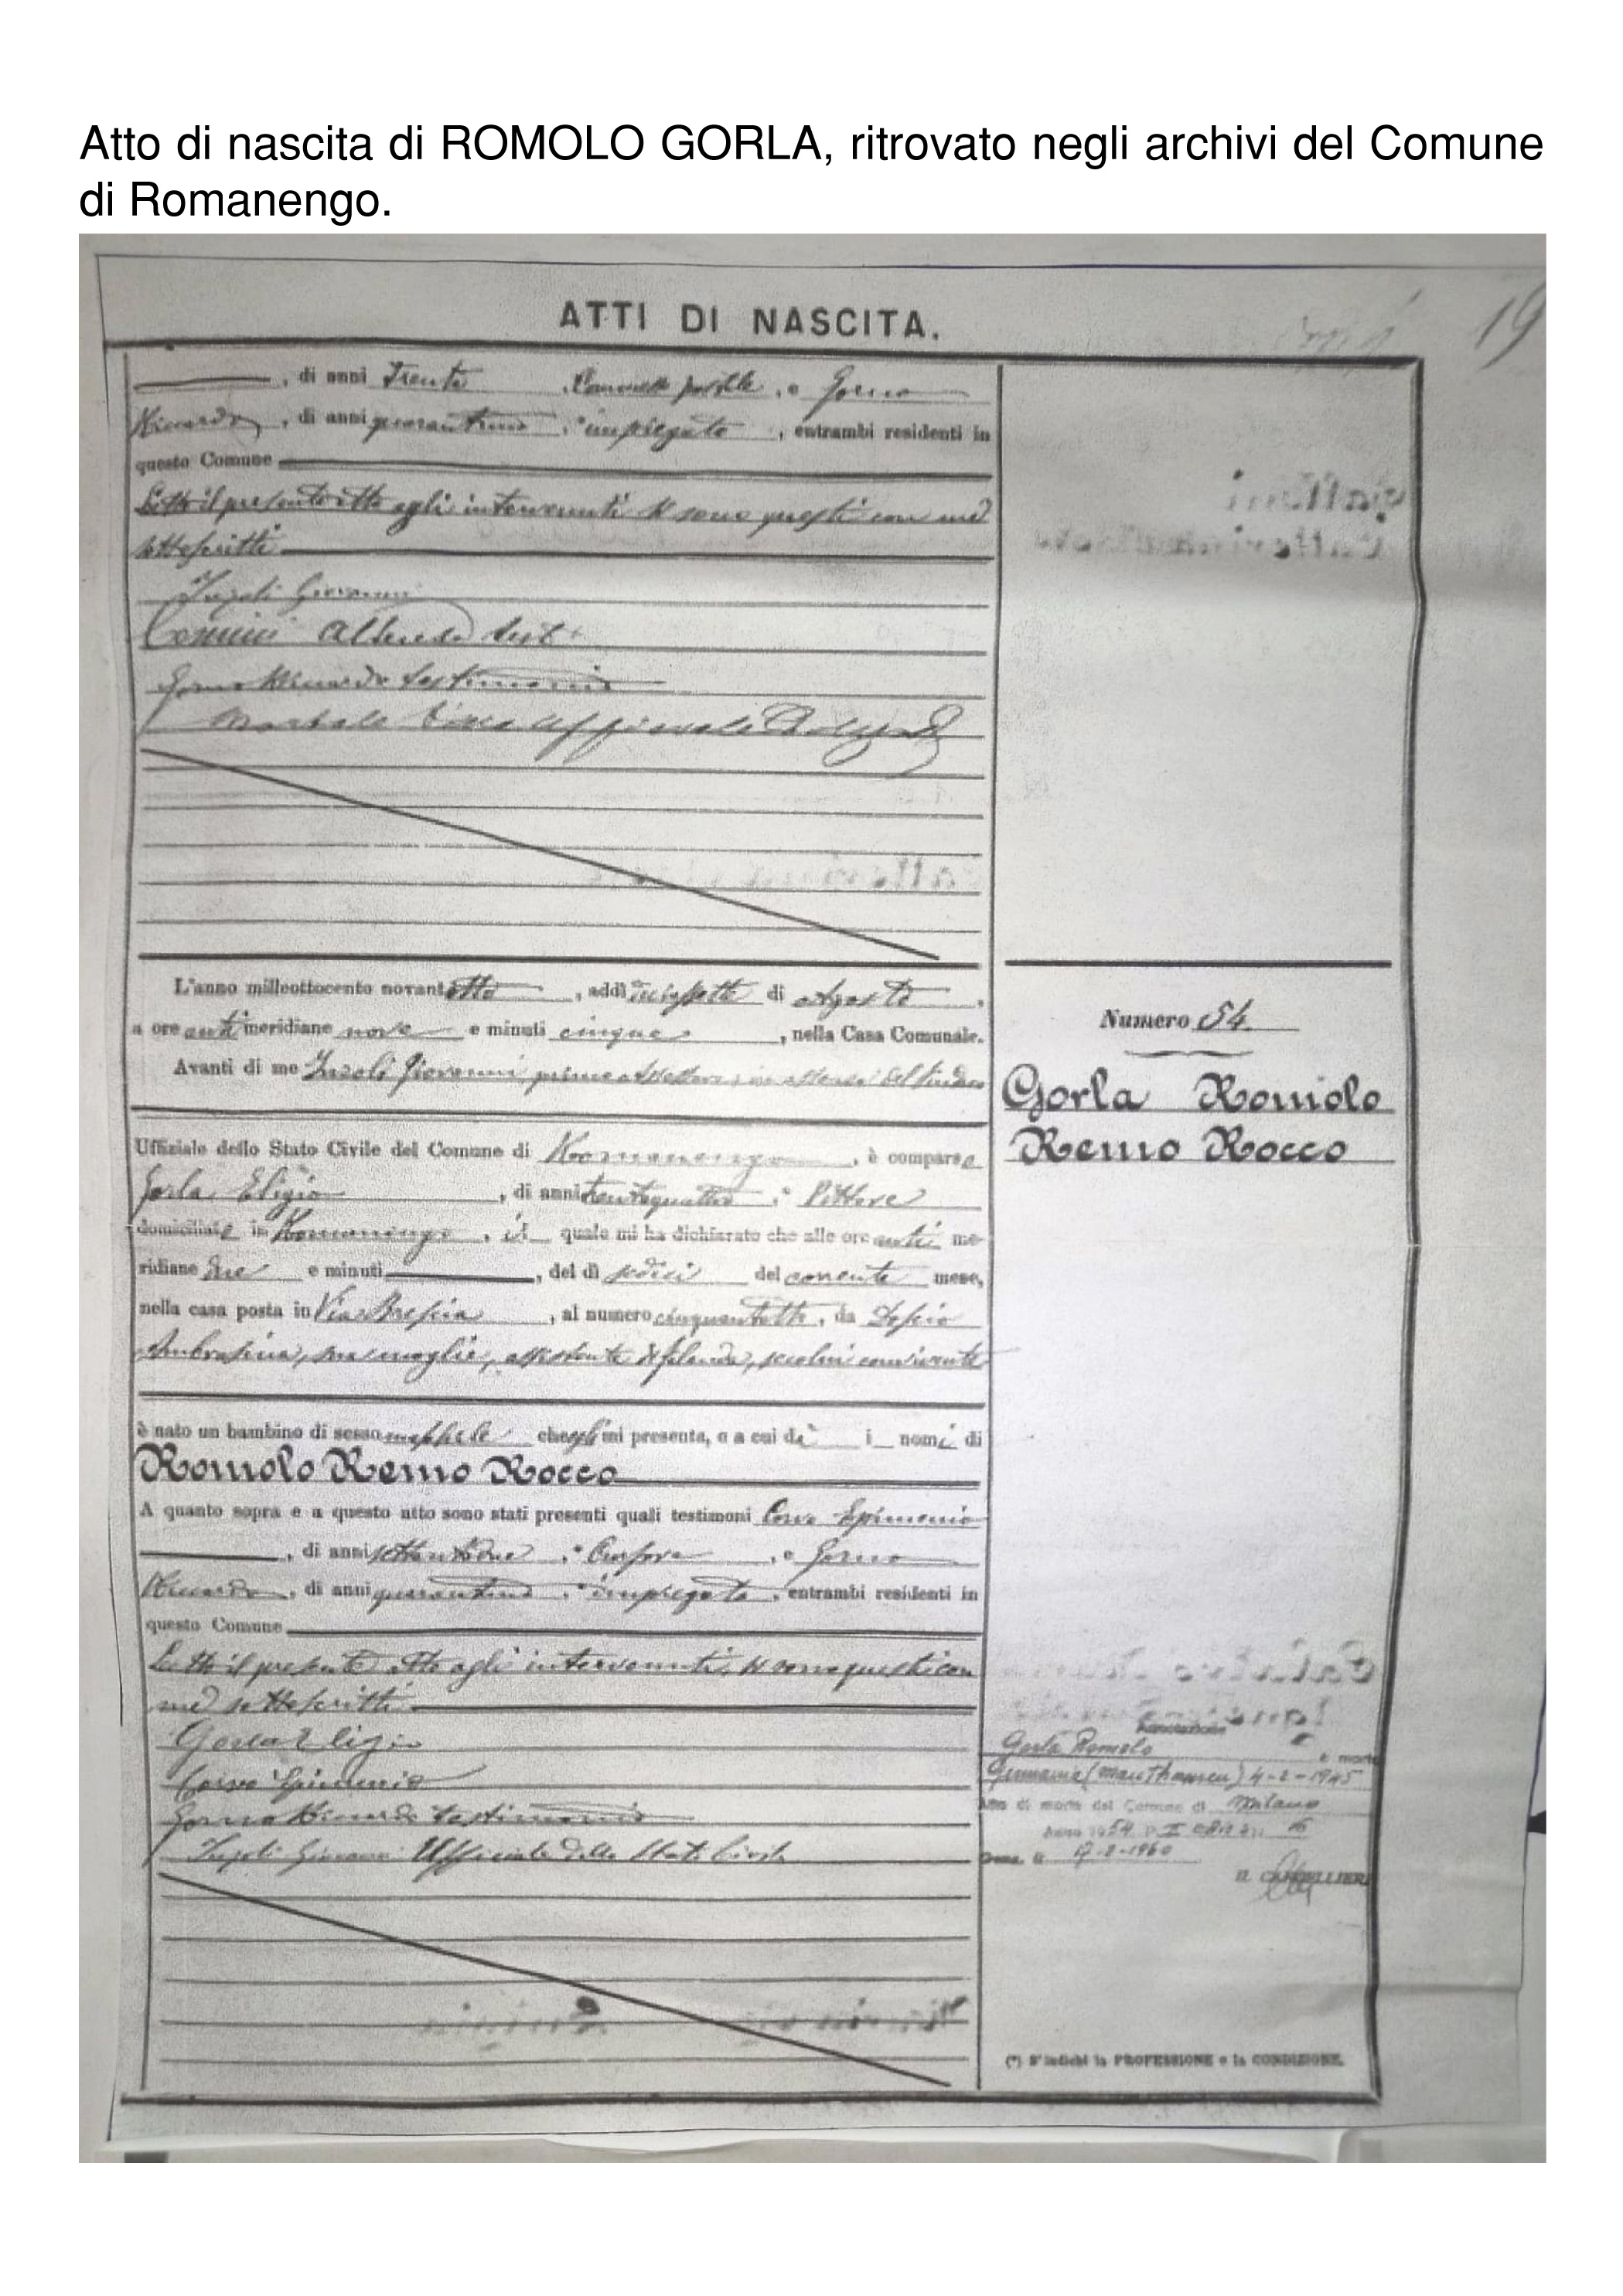 Atto di nascita di ROMOLO GORLA, ritrovato negli archivi del Comune
di Romanengo.
19
ATTI DI NASCITA.
, di anni Trenta , e Gorno
Riccardo, di anni quarantuno, impiegato, entrambi residenti in
questo Comune
Letto il presente atto agli intervenuti si sono questi con me
sottoscritti
Inzoli Giovanni
Comini test
Gorno Riccardo testimonio
L'anno milleottocento novantotto, addì diciassette di Agosto,
a ore antimeridiane nove e minuti cinque, nella Casa Comunale.
Avanti di me Inzoli Giovanni primo assessore, in assenza del Sindaco
Uffiziale dello Stato Civile del Comune di Romanengo, è comparso
Gorla Eligio, di anni trentaquattro, Pittore
domiciliato in Romanengo, il quale mi ha dichiarato che alle ore anti me-
ridiane due e minuti, del dì sedici del corrente mese,
nella casa posta in Via Brescia, al numero cinquantotto, da
Ambrosina, sua moglie, assistente di filanda, seco lui convivente
è nato un bambino di sesso maschile che egli mi presenta, e a cui dà i nomi di
Romolo Remo Rocco
A quanto sopra e a questo atto sono stati presenti quali testimoni Corso Epimenio
, di anni settantadue, , e Gorno
Riccardo, di anni quarantuno, impiegato, entrambi residenti in
questo Comune
Letto il presente atto agli intervenuti, si sono questi con
me sottoscritti
Gorla Eligio
Corso Epimenio
Gorno Riccardo testimonio
Inzoli Giovanni Ufficiale dello Stato Civile
Numero 54
Gorla Romolo
Remo Rocco
Annotazione
Gorla Romolo è morto
Germania (Mauthausen) 4-2-1945
Atto di morte del Comune di Milano
Anno 1954 P. II
17-2-1960
IL CANCELLIERE
(*) S'indichi la PROFESSIONE o la CONDIZIONE.